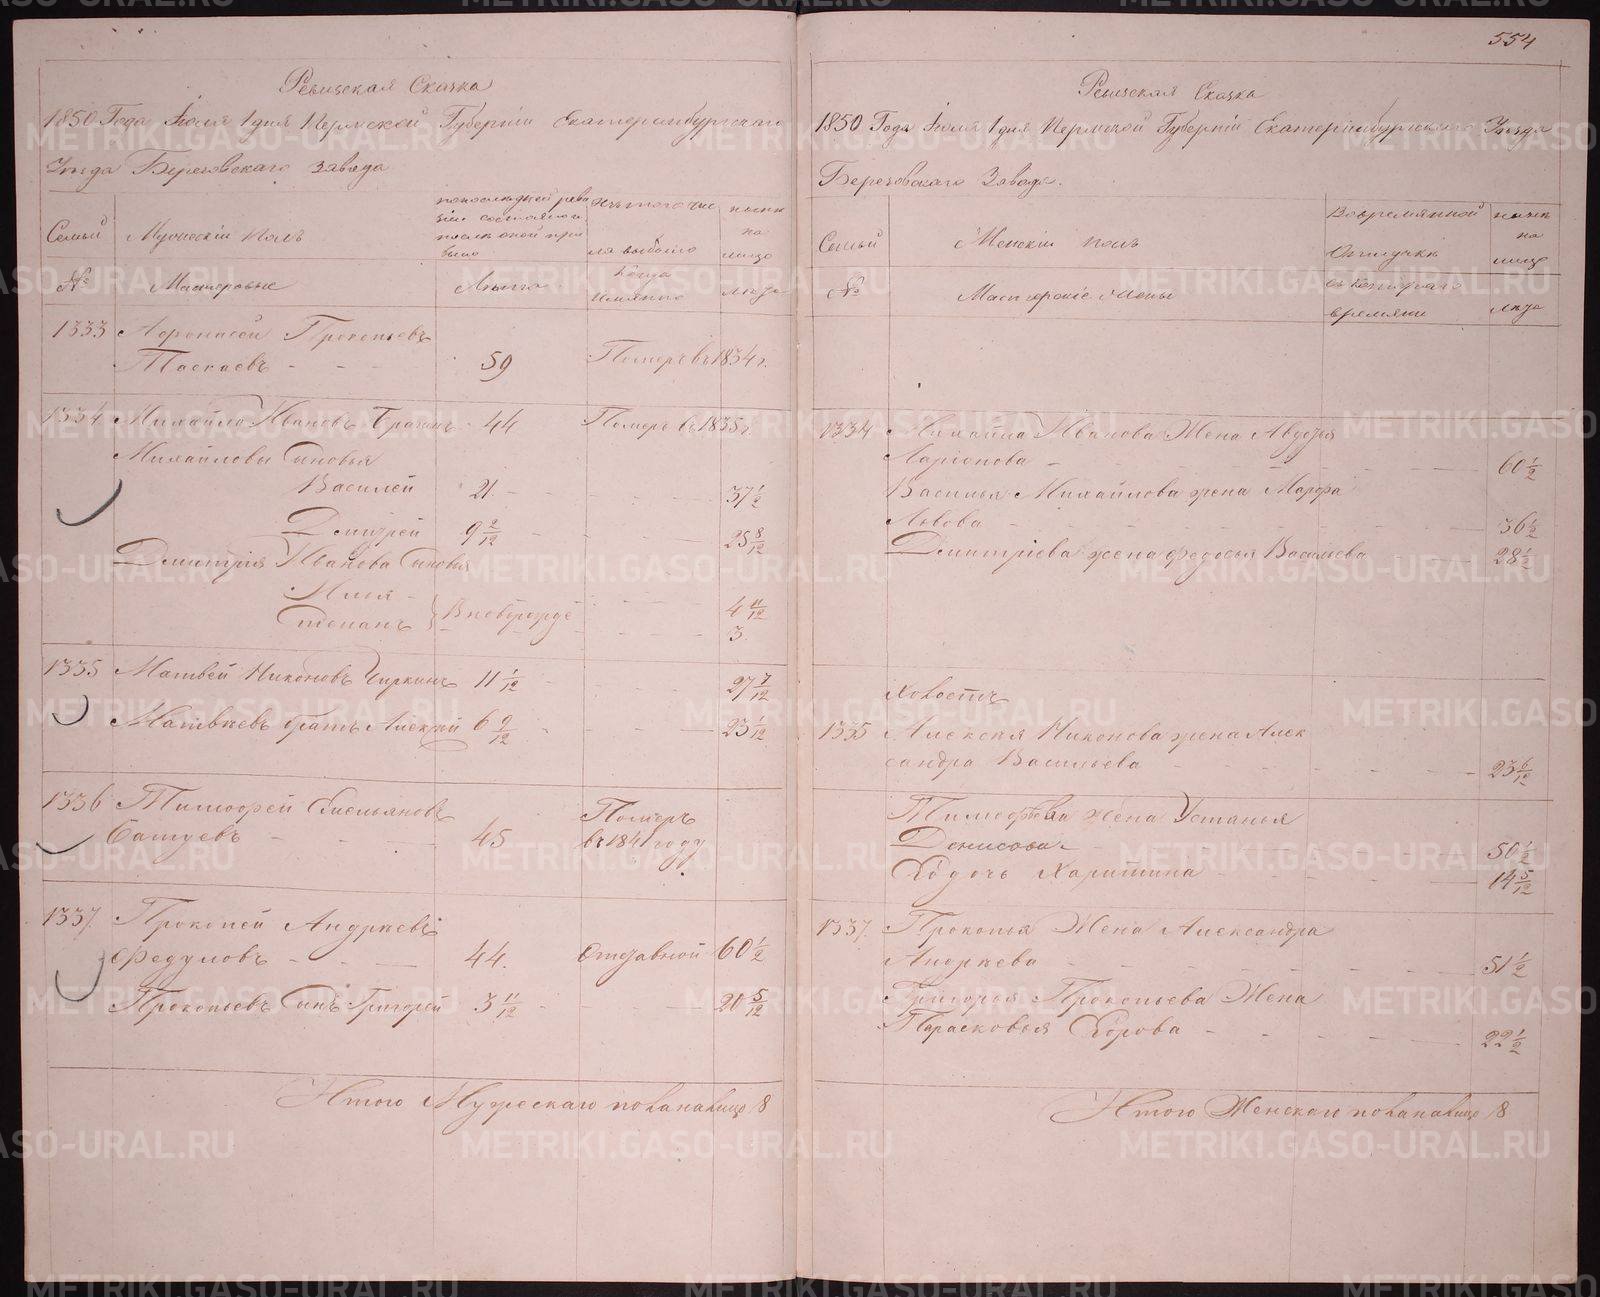 Ревизская Сказка
1850 Года Июля 1 дня Пермской Губернии Екатеринбургскаго
Уезда Березовскаго Завода
Семьи
Мужескій полъ
по последней реви
зіи состояло и
после оной при
было
изъ того чис
ла выбыло
ныне
на
лицо
№
Мастеровые
Лета
когда
имянно
лета
1333 Афонасей Прокопьевъ
Паскаевъ - - - 59 Померъ въ 1834 г.
1334 Михайло Ивановъ 44 Померъ въ 1835 г.
Михайловы Сыновья
Василей 21 - - - 37 1/2
Дмитрей 9 2/12 - - - 25 8/12
Дмитрія Иванова Сыновья
Илья -
Степанъ } Вновьрожде 4 11/12
3
1335 Матвей Никоновъ Чиркинъ 11 1/12 - - - 27 7/12
Матвеевъ братъ Алексей 6 9/12 - - - 23 1/12
1336 Тимофей Емельяновъ Померъ
- - 45 въ 1841 году
1337. Прокопей Андреевъ
Федуловъ - - 44. Отставной 60 1/2
Прокопьевъ Сынъ Григорей 3 11/12 - - - 20 5/12
Итого Мужескаго пола налицо 8
554
Ревизская Сказка
1850 Года Июля 1 дня Пермской Губерніи Екатеринбургскаго Уезда
Березовскаго Завода.
Семьи
Женскій полъ
Вовремянной
Отлучке
ныне
на
лицо
№
Мастерскіе Жоны
съ котораго
времяни
лета
1334 Михайла Иванова Жена Авдотья
Ларіонова - - - 60 1/2
Василья Михайлова жена Марфа
Львова - - - 36 1/2
Дмитріева жена Федосья Васильева - - 28 1/2
Холостъ
1335 Алексея Никонова жена Алек
сандра Васильева - - - 23 6/12
Тимофеева жена Устинья
Денисова - - - 50 1/2
Ево дочь Харитина - - - 14 5/12
1337. Прокопья Жена Александра
Андреева - - - 51 1/2
Григорья Прокопьева Жена
Парасковья Егорова - - - 22 1/2
Итого Женскаго пола налицо 8
METRIKI.GASO-URAL.RU